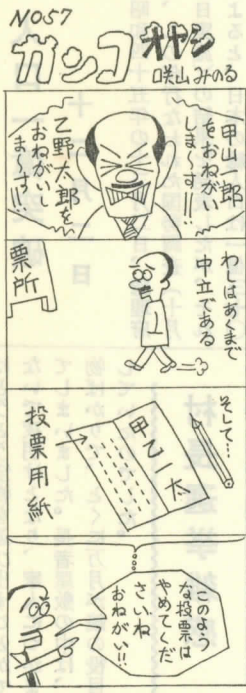 NO57
ガンコオヤジ
咲山みのる
甲山一郎
をおねがい
しま〜す!!
乙野太郎を
おねがいし
ま〜す!!
わしはあくまで
中立である
票所
そして…
甲乙一太
投票用紙
このよう
な投票は
やめてくだ
さいね
おねがい!!